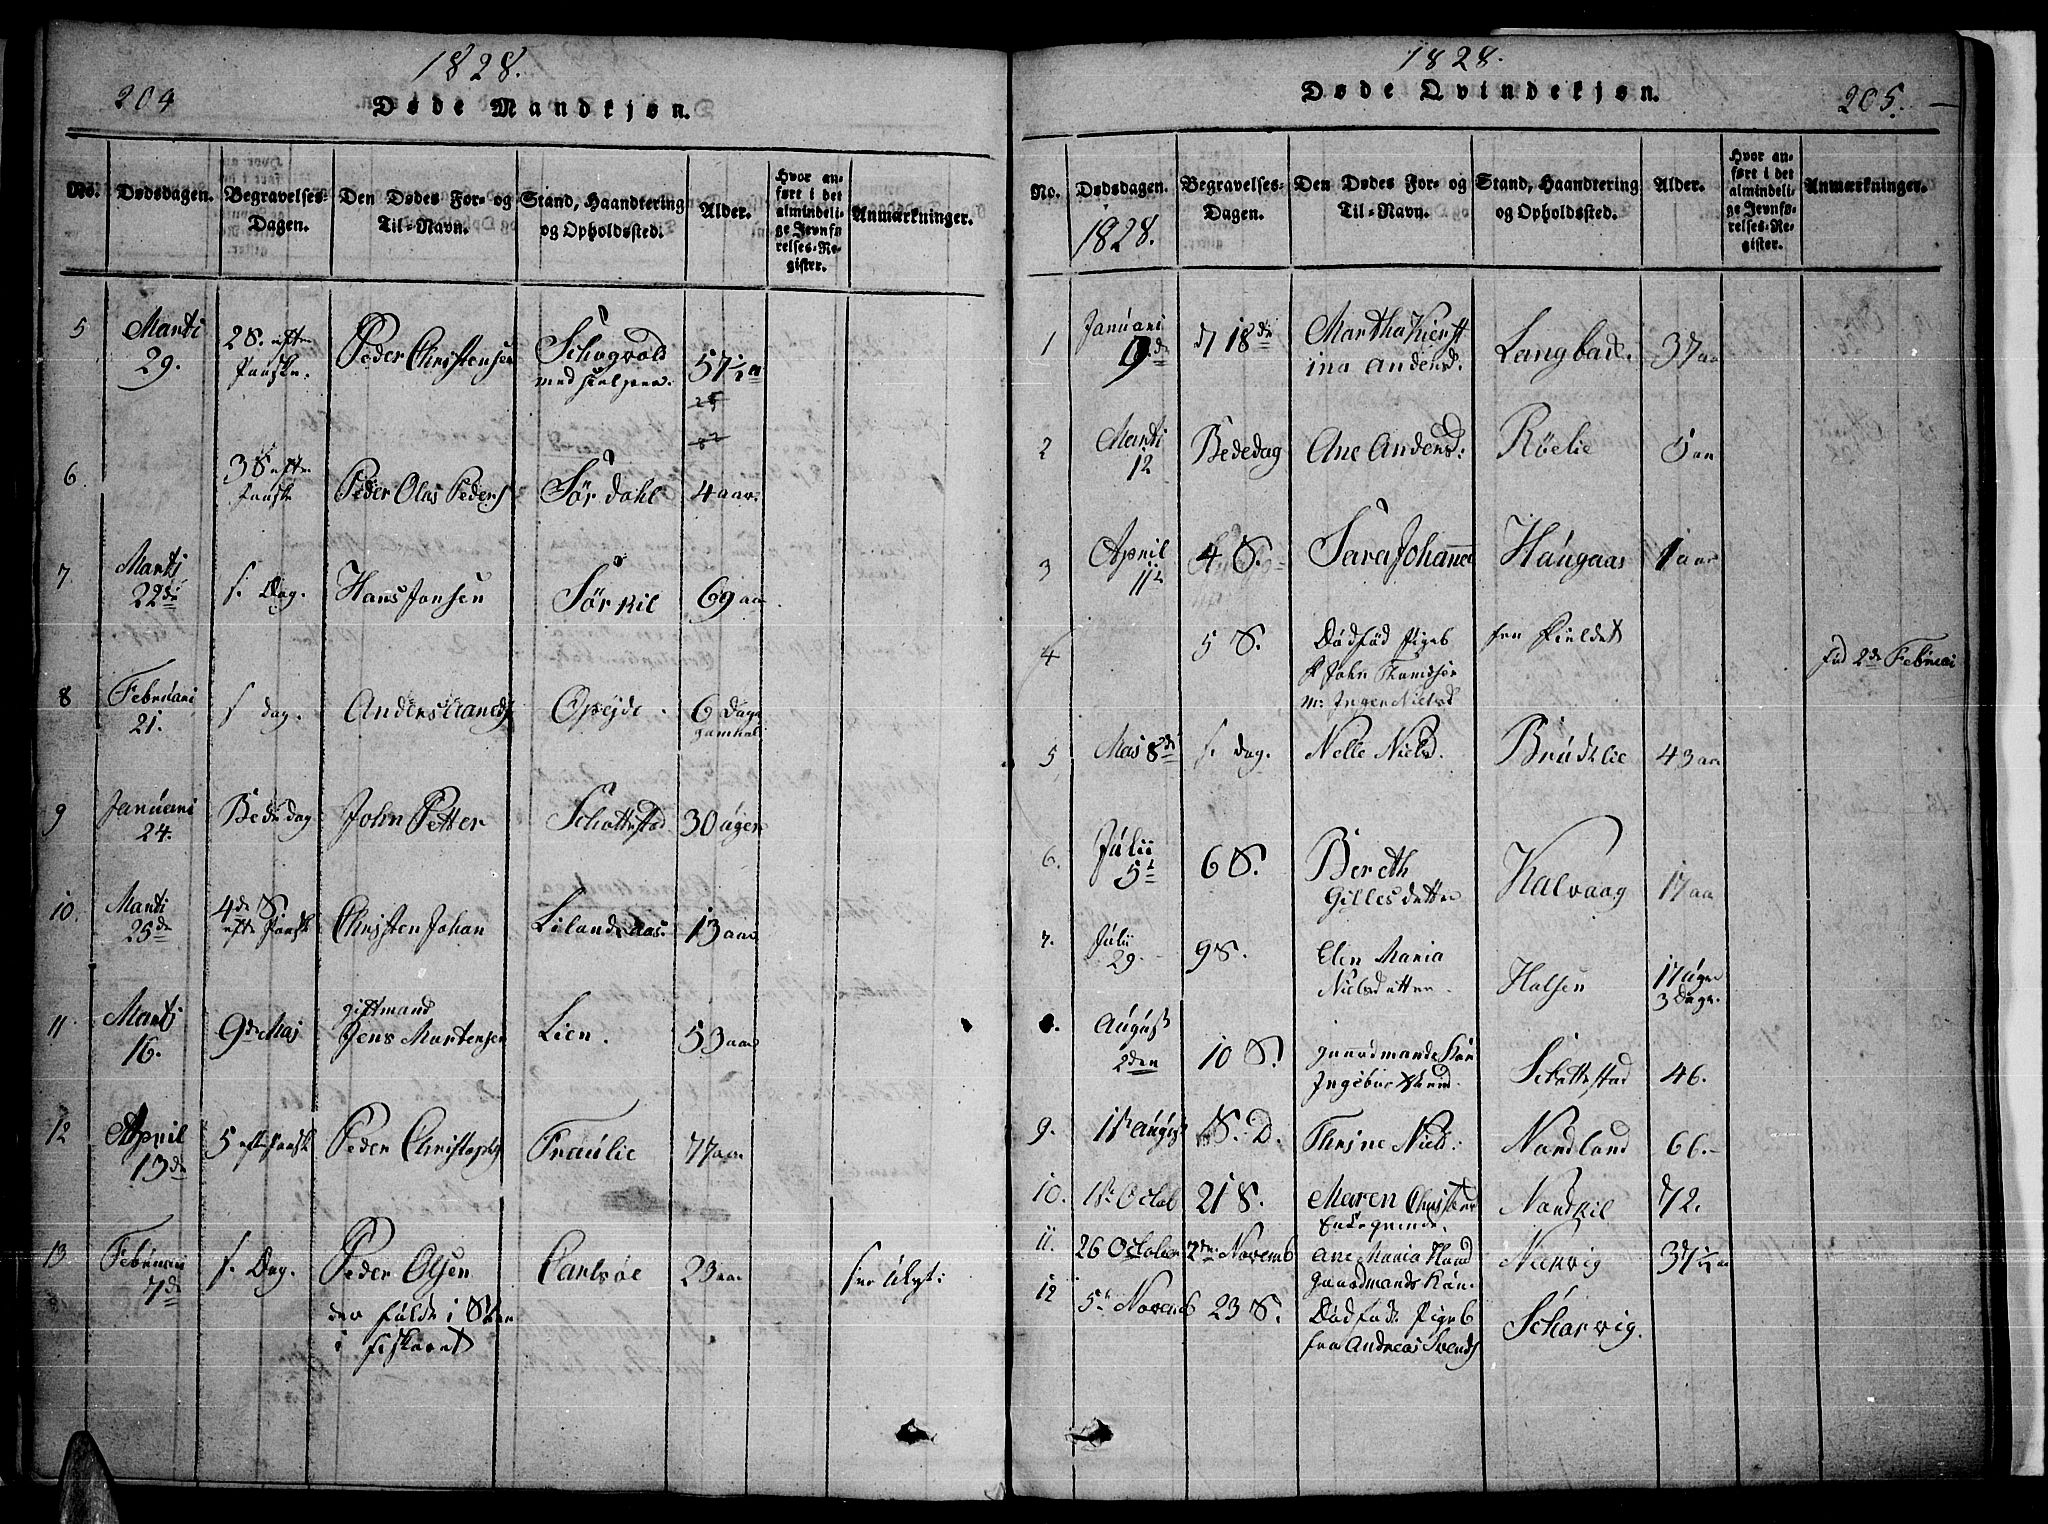 1828.
204
Døde Mandkjøn.
No. Dødsdagen. Begravelses-Dagen. Den Dødes For- og Til-Navn. Stand, Haandtering og Opholdssted. Alder. Hvor anført i det almindelige Jevnførelses-Register. Anmærkninger.
5 Marti 29. 2 S. efter Paaske. Peder Christensen 57 1/2 a
6 3 S efter Paaske Peder Olus Peders Sørdahl 4 aar
7 Marti 22de s. Dag. Hans Jonsen Sørkil 69 aar
8 Februari 21. s dag. Anders Opejde. 6 Dage gammel
9 Januari 24. Bededag John Petter Schottstad 30 Uger
10. Marti 25de 4de S efter Paaske Christen Johan Lilandsaas. 13 aar
11 Marti 16. 9de Maj giftmand Jens Mortensen Lien. 53 aar
12 April 13de 5 efter Paaske Peder Christophs Fraulie 77 aar
13 Februari 7de s. Dag. Peder Olsen Carlsøe 23 aar
1828.
205.
Døde Qvindekjøn.
No. Dødsdagen. Begravelses-Dagen. Den Dødes For- og Til-Navn. Stand, Haandtering og Opholdssted. Alder. Hvor anført i det almindelige Jevnførelses-Register. Anmærkninger.
1828.
1 Januari 9de d 18de Martha Kierstina Andersd. Langbak. 37 aa
2 Marti 12 Bededag Ane Andersd: Røelie 5 aar
3 April 4 S. Sara Johanna Haugaas 1 aar
4 5 S. Dødfød Pigeb F John Thomsen M: Inger Nielsd fød 2de Februari
5 Mai 8de s. dag. Nelle Nielsd. Brudelie 43 aar
6. Julii 5t 6 S. Bereth Gillesdatter Kalvaag 17 aa
7. Julii 29. 9 S. Elen Maria Nielsdatter. Halsen 17 Uger 3 Dage.
August 2den 10 S. gaardmands Kone Schottstad 46.
9. 11t August S. D. Nielsd: Nordland 66.
10. 1ste Octob 21 S. Maren Enkeqvinde. Nordkil 72.
11. 26 October 2den Novemb Ane Maria gaardmands Kone. Nærvig 37 1/2 aa
12 5t Novemb 23 S. Dødfødt Pigeb fra Andreas Svends Scharvig.